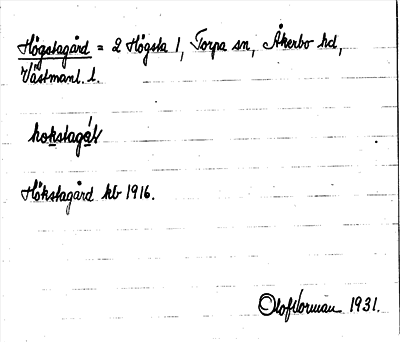 Högstagård = 2 Högsta 1, Torpa sn, Åkerbo hd,
Västmanl. l.
hokstagá̊ṣ
Hökstagård kb 1916.
Olof Norman 1931.